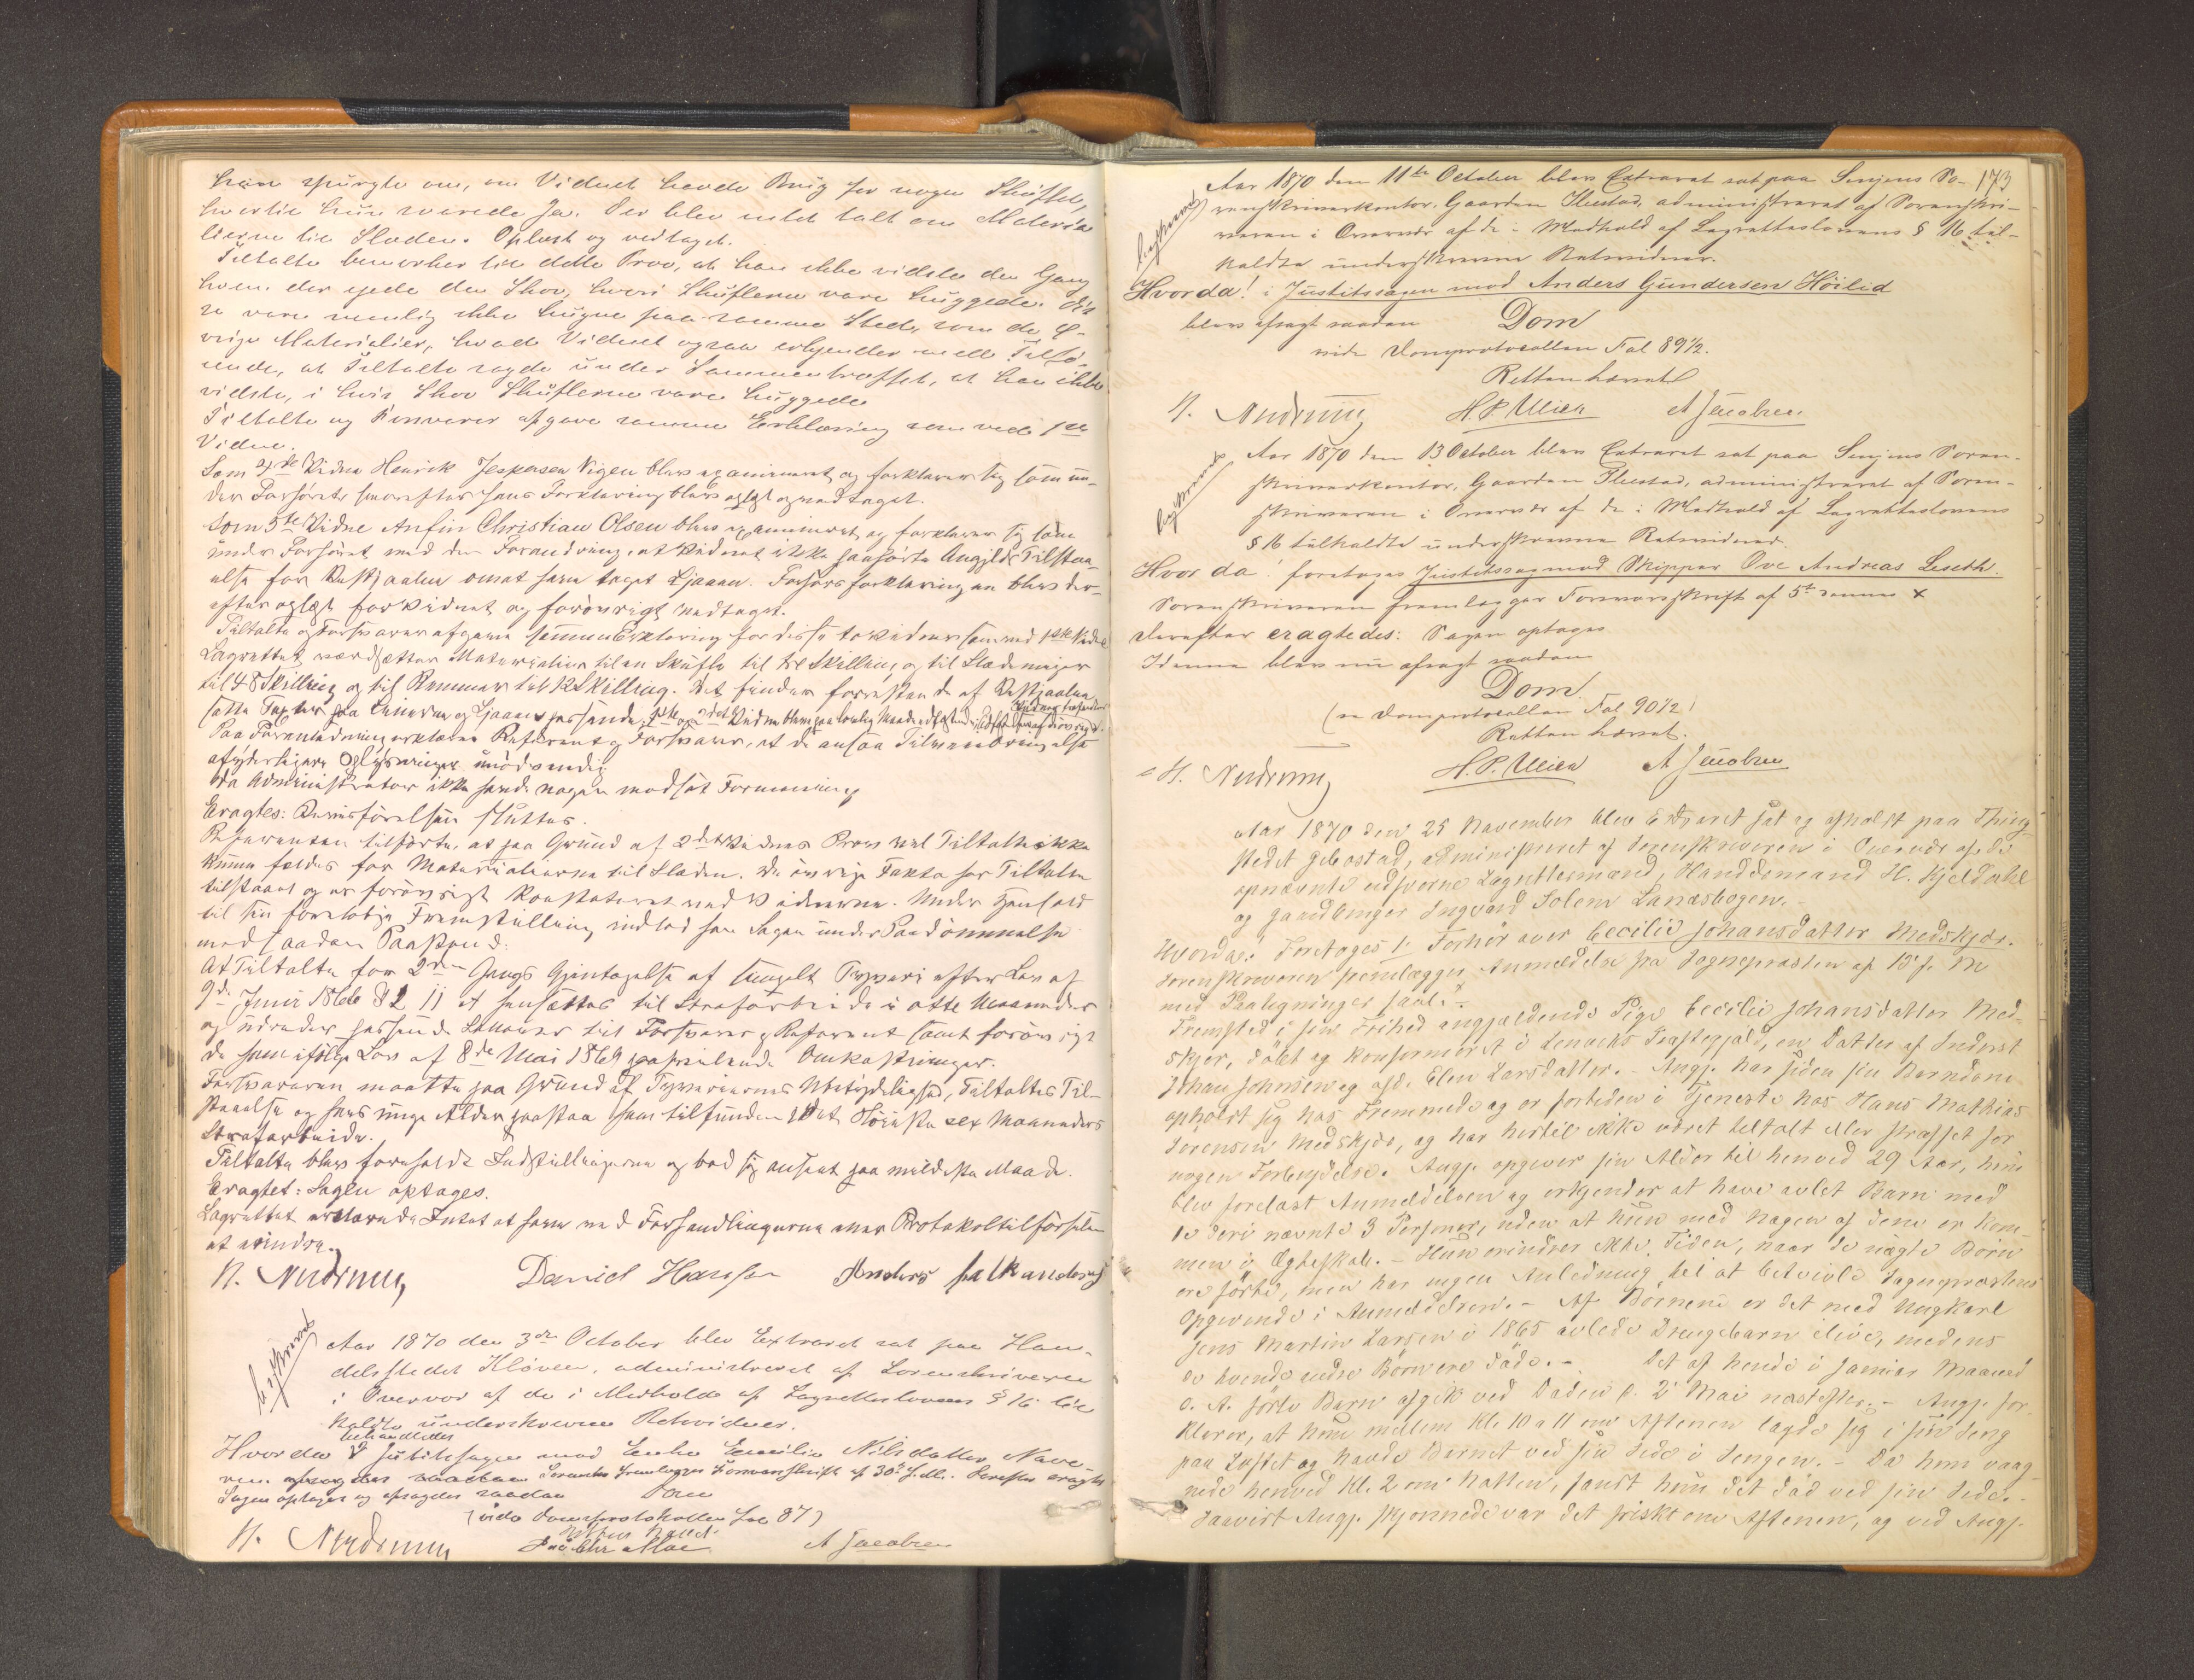 han spurgte om, om Vidnet havde Brug for nogen Skuffel,
hvortil hun svarede Ja. Der blev intet talt om Materia
lierne til Sladen. Oplæst og vedtaget.
Tiltalte bemærker til dette Prov, at han ikke vidste den Gang
hvem der ejede den Skov, hvori Skuflerne vare huggede. Dis
se vare nemlig ikke hugne paa samme Sted, som de ø-
vrige Materialier, hvad Vidnet ogsaa erkjender med Tilfø-
iende, at Tiltalte sagde under Sammentræffet, at han ikke
vidste, i hvis Skov Skuflerne vare huggede
Tiltalte og Forsvarer afgave samme Erklæring som ved 1ste
Vidne.
Som 4de Vidne Henrik Jespersen Vigen blev examineret og forklarer sig som un-
der Forhøret, hvorefter hans Forklaring blev oplæst og vedtaget.
Som 5te Vidne Anfin Christian Olsen blev examineret og forklarer sig som
under Forhøret med den Forandring, at Vidnet ikke paahørte Angjeldes Tilstaa-
else for Bestjaalne om at have taget Ljaaen. Forhørsforklaringen blev der-
efter oplæst for Vidnet og forøvrigt vedtaget.
Tiltalte og Forsvarer afgave samme Erklæring for disse to Vidner som ved 1ste Vidne
Lagrettet værdsætter Materialier til en Skufle til tre Skilling og til Slædemeier
til 48 Skilling og til Remmer til 12 Skilling. Det finder forresten de af Bestjaalne
satte Taxter paa og Ljaaen passende. 1ste og 2det Vidne bleve paa lovlig Maade edfæstede
Paa Foranledning erklærer Referent og Forsvarer, at de ansaa Tilveiebringelse
af yderligere Oplysninger unødvendig
da Administrator ikke havde nogen modsat Formening
Eragtes: Bevisførelsen sluttes.
Referenten tilførte, at paa Grund af 2det Vidnes Prov vil Tiltalte ikke
kunne fældes for Materialierne til Sladen. De øvrige Fakta har Tiltalte
tilstaaet og er forøvrigt konstateret ved Vidnerne. Under Henhold
til sin foreløbige Fremstilling indlod han Sagen under Paadømmelse
med saadan Paastand:
At Tiltalte for 2den Gangs Gjentagelse af simpelt Tyveri efter Lov af
9de Juni 1866 § 2 jj at hensættes til Strafarbeide i otte Maaneder
og udreder passende Sallærer til Forsvarer og Referent samt forøvrigt
de ham ifølge Lov af 8de Mai 1869 paahvilende Omkostninger.
Forsvareren maatte paa Grund af Tyveriernes Ubetydelighed, Tiltaltes Til-
staaelse og hans unge Alder paastaa ham tilfunden i det Høieste sex Maaneders
Strafarbeide.
Tiltalte blev foreholdt Indstillingerne og bad sig anseet paa mildeste Maade.
Eragtet: Sagen optages.
Lagrettet erklærede Intet at have ved Forhandlingerne eller Protokoltilførselen
at erindre.
N. Nudring Daniel Hansen Anders Falkandersen
Beskrevet
Aar 1870 den 3die October blev Extraret sat paa Han-
delsstedet Kløven, administreret af Sorenskriveren
i Overvær af de i Medhold af Lagretteslovens § 16 til
kaldte underskrevne Retsvidner.
Hvorda behandledes Justitssagen mod Enke Emilie Nilsdatter Nave-
ren. Sorenskr. fremlægger Forsvarsskrift af 30te Juli. Derefter eragtes
Sagen optages og afsagdes saadan Dom
(vide Domsprotokollen Fol 87)
Retten hævet.
N. Nudring A Jacobsen
173
Beskrevet
Aar 1870 den 11te October blev Extraret sat paa Senjens So-
renskriverkontor, Gaarden Skustad, administreret af Sorenskri-
veren i Overvær af de i Medhold af Lagretteslovens § 16 til-
kaldte underskrevne Retsvidner.
Hvorda! i Justitssagen mod Anders Gundersen Höilid
blev afsagt saadan Dom
vide Domprotocollen Fol 89½.
Retten hævet
N. Nudring H. P. Meier A Jacobsen
Beskrevet
Aar 1870 den 13 October blev Extraret sat paa Senjens Soren-
skriverkontor, Gaarden Skustad, administreret af Soren-
skriveren i Overvær af de i Medhold af Lagretteslovens
§ 16 tilkaldte underskrevne Retsvidner.
Hvor da! foretages Justitssag mod Skipper Ove Andreas Leseth.
Sorenskriveren fremlægger Forsvarsskrift af 5te dennes x
Derefter eragtedes: Sagen optages
I denne blev nu afsagt saadan
Dom.
(se Domprotocollen Fol 90½)
Retten hævet.
N. Nudring H. P. Meier A Jacobsen
Aar 1870 den 25 November blev Extraret sat og afholdt paa Thing-
stedet Gibostad, administreret af Sorenskriveren i Overvær af de
opnævnte edsvorne Lagrettesmænd, Handelsmand H. Kjeldahl
og Gaardbruger Ingvard Solem Lanæsbogen.
Hvorda! Foretoges 1. Forhør over Cecilie Johansdatter Medskjær.
Sorenskriveren fremlægger Anmeldelse fra Sognepræsten af 13 f. M
med Paategninger saal. x
Fremsted i sin Frihed angjældende Pige Cecilie Johansdatter Med-
skjær, døbt og konfirmeret i Lenviks Præstegjæld, en Datter af Inderst
Johan Johnsen og afd. Elen Larsdatter. – Angj. har siden sin Barndom
opholdt sig hos Fremmede og er fortiden i Tjeneste hos Hans Mathias
Sørensen Medskjær, og har hertil ikke været tiltalt eller straffet for
nogen Forbrydelse. Angj. opgiver sin Alder til henved 29 Aar, hun
blev forelæst Anmeldelsen og erkjender at have avlet Barn med
de deri nævnte 3 Personer, uden at hun med nogen af dem er kom-
men i Ægteskab. – Hun erindrer ikke Tiden, naar de uægte Børn
ere fødte, men har ingen Anledning til at betvivle Sognepræstens
Opgivende i Anmeldelsen. – Af Børnene er det med Ungkarl
Jens Martin Larsen i 1865 avlede Drengebarn ilive, medens
de tvende andre Børn ere døde. – Det af hende i Januar Maaned
d. A. fødte Barn afgik ved Døden d. 2 Mai næstefter. – Angj. for-
klarer, at hun mellem Kl. 10 a 11 om Aftenen lagde sig i sin Seng
paa Loftet og havde Barnet ved sin Side i Sengen. – Da hun vaag-
nede henved Kl. 2 om Natten, fandt hun det død ved sin Side. –
Saavidt Angj. skjønnede var det friskt om Aftenen, og ved Angj.